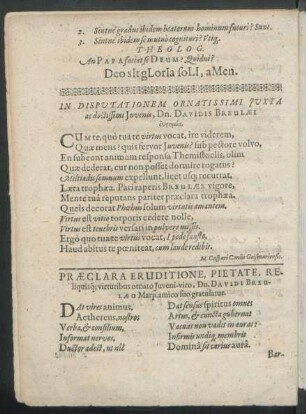 2. Sintne gradus ibidem beatorum hominum futuri? Sunt.
3. Sintne ibidem se mutuò cognituri? Utiq.
THEOLOG.
An PAPA faciat se DEUM? Quidni?
Deo sIt gLorIa soLI, aMen.
IN DISPUTATIONEM ORNATISSIMI JUXTA
ac doctissimi Juvenis, DN. DAVIDIS BREULÆI
CUM te, quò tua te virtus vocat, ire viderem,
Quæ mens? quis fervor Juvenis? sub pectore volvo,
En subeunt animum responsa Themistoclis, olim
Quæ dederat, cur non posset dormire rogatus:
Mcistiadis somnum expellunt, licet usq; recurrat,
Læta trophæa. Pari raperis BREULÆE vigore,
Mente tuâ reputans pariter præclara trophæa,
Queis decorat Phœbus solum virtutis amantem,
Virtus est vitio torporis cedere nolle,
Virtus est tenebris versari in pulvere missis.
Ergò quo tua te virtus vocat, I pede fausto,
Haud abs te te pœniteat, cum laude redibis.
M. Caspari Cordes Geismariensis.
PRÆCLARA ERUDITIONE, PIETATE, RE-
liquisq; virtutibus ornato Juveni-viro, Dn. DAVIDI BREU-
LÆO Marp. amico suo gratulitur.
DAt vires animus,
Aethereus, nostros
Verba, & consilium,
Informat nervos,
Doctor adest, ut nil
Dat sensus spiritus omnes
Artus, & cuncta gubernat
Vacuas non vadit in auras:
Infirmis undiq; membris
Dominâ sit carius aurâ.
Bar-